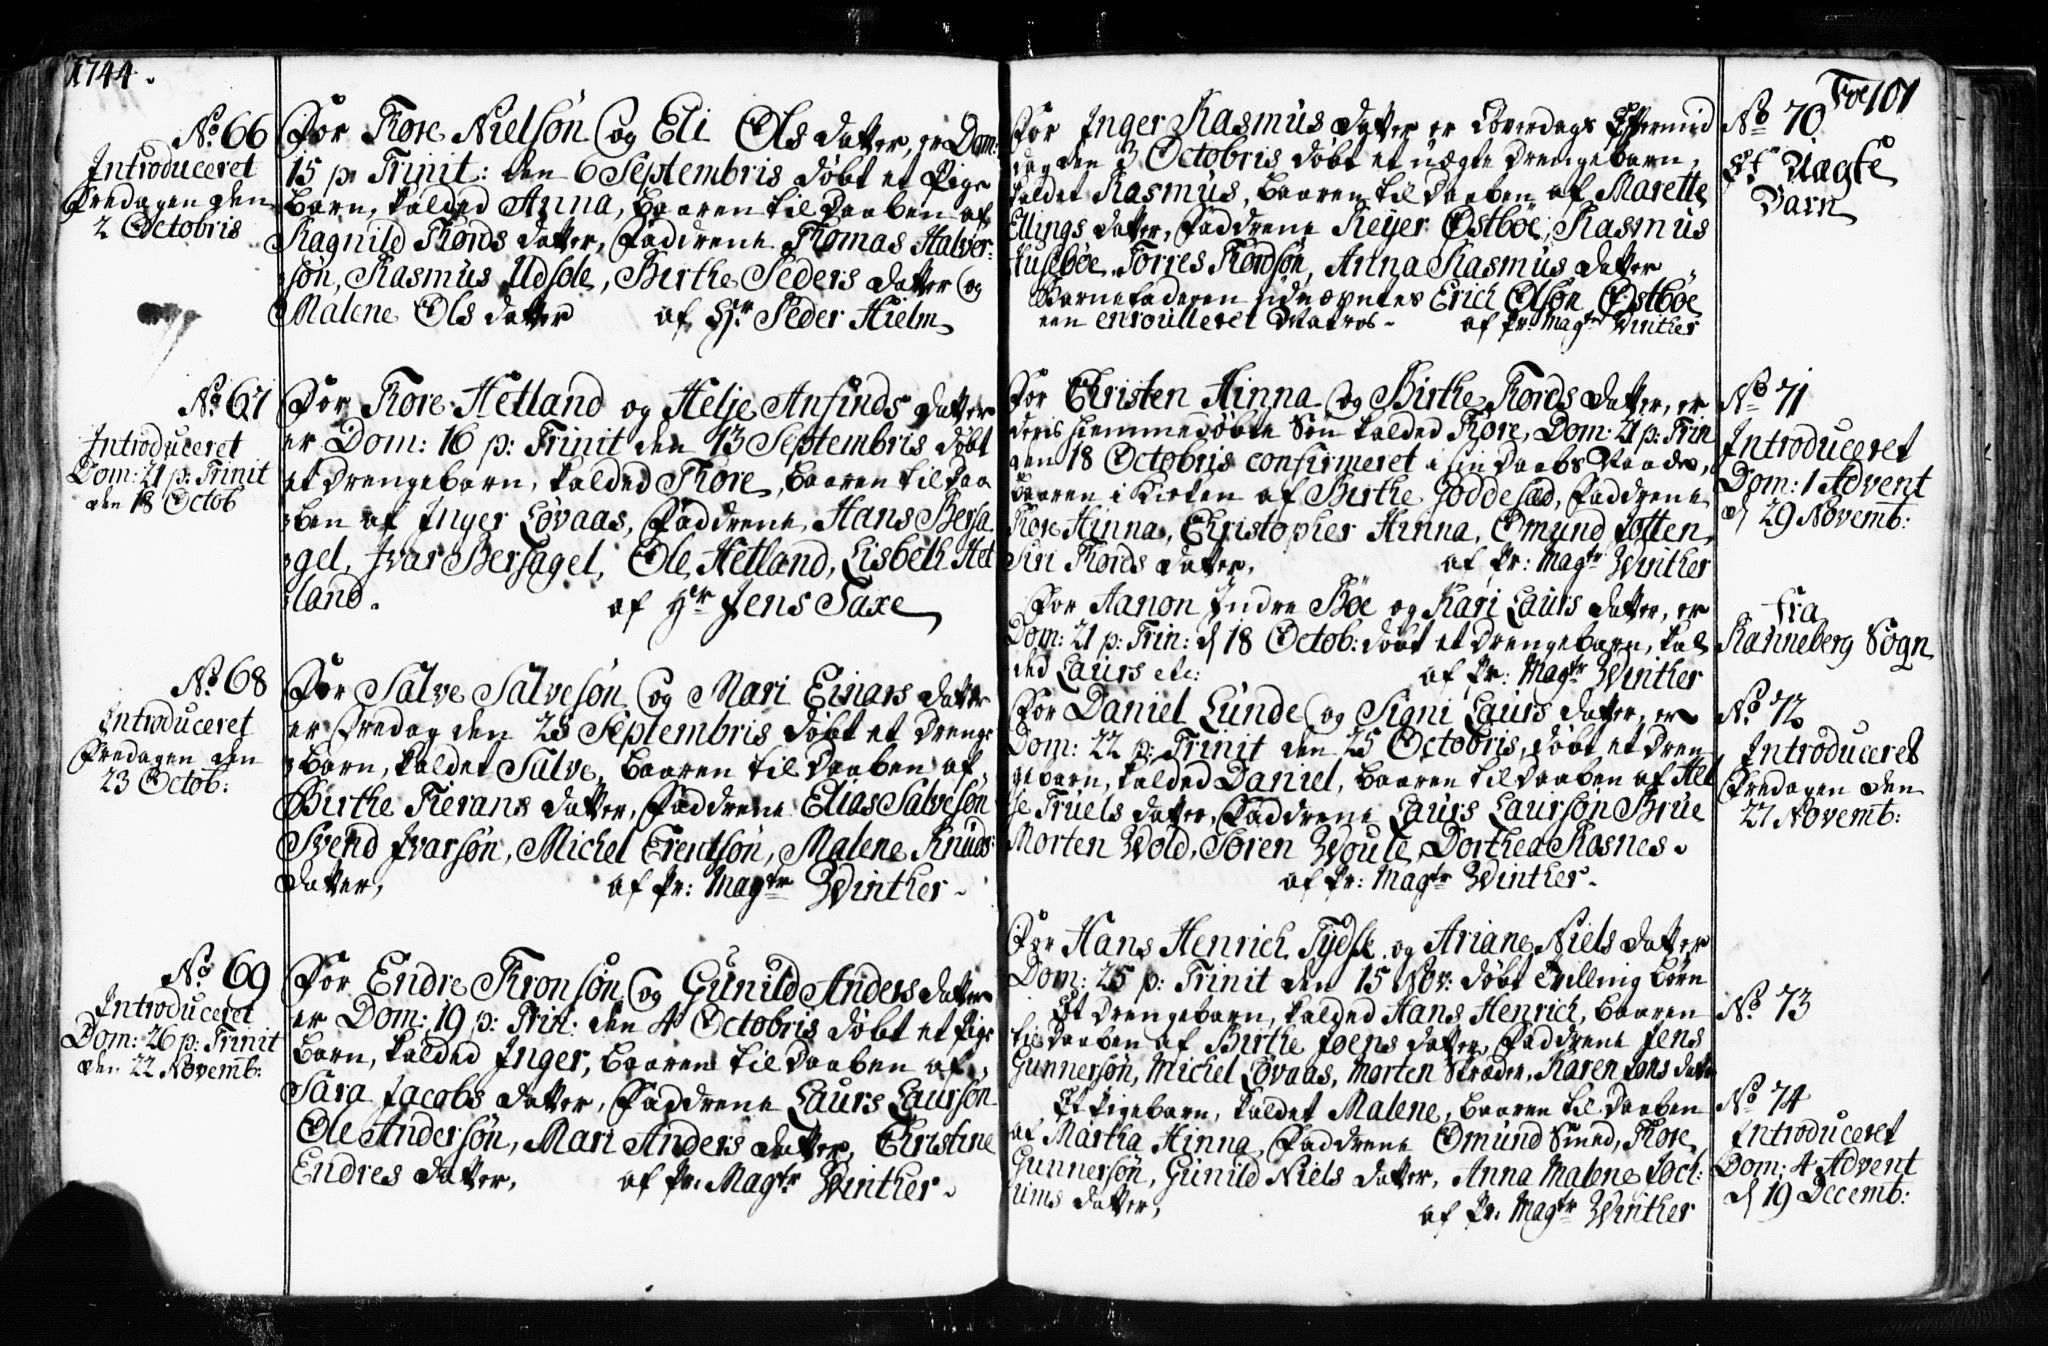 1744.
No 66
Introduceret
Fredagen den
2 Octobris
For Tore Nielsön og Eli Ols datter, er Dom:
15 p: Trinit: den 6 Septembris döbt et Pige
barn, kalded Anna, baaren til Daaben af
Ragnild Tords datter, Faddrene Tomas Halver-
:sön, Rasmus Udsole, Birthe Peders datter og
Malene Ols datter af Hr Peder Hielm
No 67
Introduceret
Dom: 21 p: Trinit
den 18 Octob
For Tore Hetland og Helje Anfinds datter
er Dom: 16 p: Trinit den 13 Septembris döbt
et drengebarn, kalded Tore, baaren til daa
:ben af Inger Lövaas, Faddrene, Hans Bersa
:gel, Ivar Bersagel, Ole Hetland, Lisbeth Het
:land. af Hr Jens Saxe
No 68
Introduceret
Fredagen den
23 Octob:
For Salve Salvesön og Mari Einars datter
er Fredag den 25 Septembris döbt et drenge
:barn, kaldet Salve, baaren til daaben af
Birthe Tierans datter, Faddrene Elias Salvesön
Svend Ivarsön, Michel Erentsön, Malene Knuds
datter, af Pr: Magtr Winther
No 69
Introduceret
Dom: 26 p: Trinit
den 22 Novemb:
For Endre Tronsön og Gunild Anders datter
er Dom: 19 p: Trin: den 4 Octobris döbt et Pige
barn, kalded Inger, baaren til daaben af
Sara Jacobs datter, Faddrene Laurs Laursön
Ole Andersön, Mari Anders datter, Christine
Endres datter, af Pr: Magtr Winther
Foe 101
For Inger Rasmus datter er Löverdags Eftermid
dag den 3 Octobris döbt et uægte drengebarn,
kaldet Rasmus, baaren til Daaben af Marette
Ellings datter, Faddrene Reyer Östböe, Rasmus
Huseböe, Torres Tordsön, Anna Rasmus datter
Barnefaderen udnævntes Erich Olsön Östböe
een enroulleret Matros af Pr: Magtr Winther
No 70
Et Uagte
Barn
For Christen Hinna og Birthe Tords datter, er
deris hiemmedöbte Sön kalded Tore, Dom: 21 p: Trin
den 18 Octobris confirmeret i sin Daabs Naade,
baaren i Kirken af Birthe Joddesæd, Faddrene
Tore Hinna, Christopher Hinna, Omund Jotten,
Siri Tords datter, af Pr: Magtr Winther
No 71
Introduceret
Dom: 1 Advent
d 29 Novemb:
For Hanon Indre Böe og Kari Laurs datter, er
Dom: 21 p: Trin: d 18 Octob: döbt et drengebarn, kal
ded Laurs etc: af Pr: Magtr Winther
fra
Ranneberg Sogn
For Daniel Lunde og Signi Laurs datter, er
Dom: 22 p: Trinit den 25 Octobris, döbt et dren
gebarn, kalded Daniel, baaren til daaben af Hel
je Truels datter, Faddrene Laurs Laursön Brue
Morten Wold, Sören Woule, Dorthea Rosnes.
af Pr: Magtr Winther
No 72
Introduceret
Fredagen den
27 Novemb:
For Hans Henrich Tydsk og Ariane Niels datter
Dom: 25 p: Trinit den 15 Nov: döbt Tvilling börn
Et drengebarn, kalded Hans Henrich, baaren
til daaben af Birthe Joens datter, Faddrene Jens
Gunnersön, Michel Lövaas, Morten Skräder, Karen Jons datter
No 73
Et Pigebarn, kaldet Malene, baaren til daaben
af Martha Hinna, Faddrene Omund Smed, Tore
Gunnersön, Gunild Niels datter, Anna Malene Joch:
ums datter, af Pr: Magtr Winther
No 74
Introduceret
Dom: 4 Advent
d 19 Decemb: